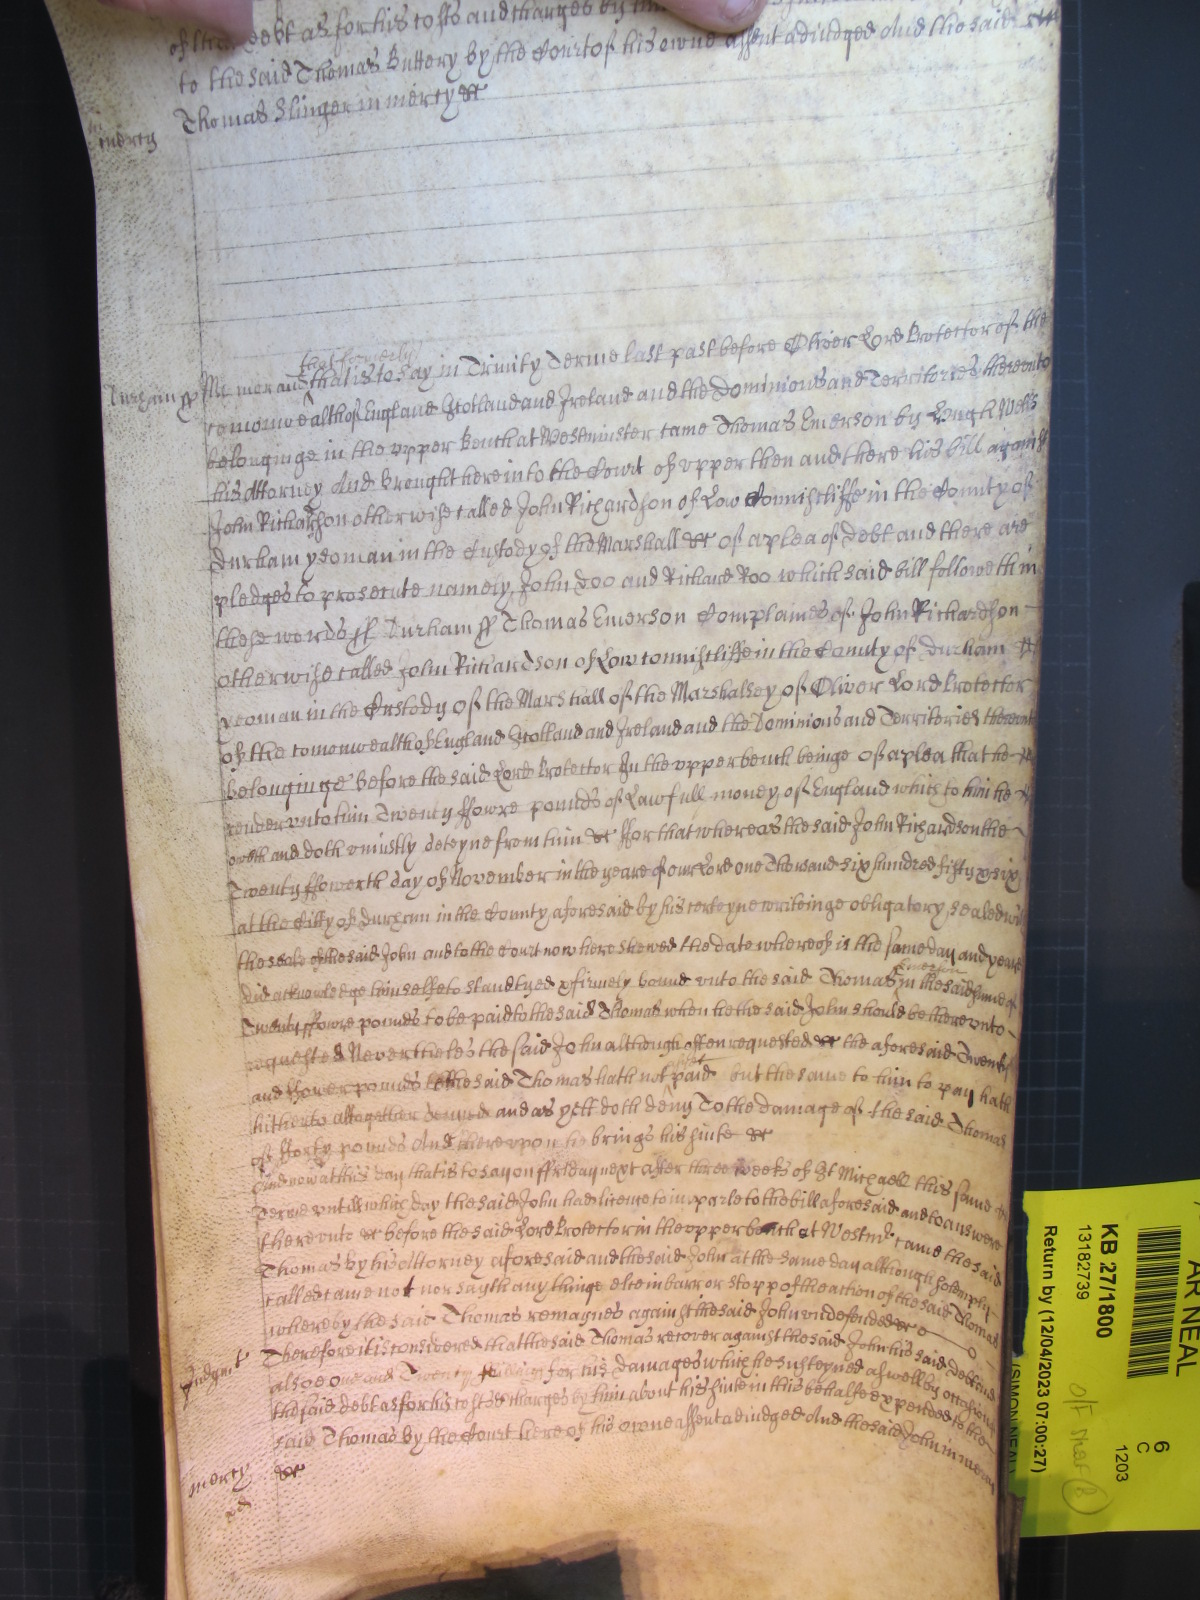 of the debt as for his costs and charges by him
to the said Thomas Buttery by the Court of his owne assent adiudged And the said
Thomas Slinger in mercy &c
mercy
that formerly
Durham ss Memorand that is to say in Trinity Terme last past before Oliver Lord Protector of the
comonwealth of England Scotland and Ireland and the Dominions and Territories thereunto
belonginge in the upper Bench at Westminster came Thomas Emerson by Hugh Wells
his Attorney And brought here into the Court of upper then and there his bill against
John Richardson otherwise called John Richardson of Low Conniscliffe in the County of
Durham yeoman in the Custody of the Marshall &c of a plea of debt and there are
pledges to prosecute namely John Doo and Richard Roo which said bill followeth in
these words ss Durham ss Thomas Emerson Complaines of John Richardson
otherwise called John Richardson of Low conniscliffe in the County of Durham
yeoman in the Custody of the Marshall of the Marshalsey of Oliver Lord Protector
of the comonwealth of England Scotland and Ireland and the Dominions and Territories thereunto
belonginge before the said Lord Protector In the upper bench beinge of a plea that he
render unto him Twenty ffowre pounds of Lawfull money of England which to him he
oweth and doth uniustly deteyne from him &c ffor that whereas the said John Richardson the
Twenty ffowerth day of November in the yeare of our Lord one Thousand six hundred fifty & six
at the Citty of Durham in the County aforesaid by his certeyne writeinge obligatory sealed with
the seale of the said John and to the Court now here shewed the date whereof is the same day and yeare
Emerson
did acknowledge himselfe to stand tyed & firmely bound unto the said Thomas in the said summe of
Twenty ffowre pounds to be paid to the said Thomas when he the said John should be thereunto
requested Neverthelesse the said John although often requested &c the aforesaid Twenty
and ffower pounds to the said Thomas hath not paid but the same to him to pay hath
hitherto altogether denyed and as yett doth deny To the damage of the said Thomas
of fforty pounds And thereupon he brings his suite &c
And now at this day that is to say on ffriday next after three weekes of St Michaell this same
Terme untill which day the said John had license to imparle to the bill aforesaid and to answere
thereunto &c before the said Lord Protector in the upper bench at Westmr came the said
Thomas by his Attorney aforesaid and the said John at the same day although solemply
called came not nor sayth any thinge else in barr or stopp of the action of the said Thomas
whereby the said Thomas remaynes against the said John undefended &c
Judgmt Therefore it is considered that the said Thomas recover against the said John his said debt and
alsoe one and Twenty shillings for his damages which he susteyned aswell by occasion of
the said debt as for his costs & charges by him about his suite in this behalfe expended to the
said Thomas by the Court here of his owne assent adiudged And the said John in mercy
mercy &c
AR NEAL
KB 27/1800
13182739
Return by (12/04/2023 07:00:27)
(SIMON NEAL)
6
C
1203